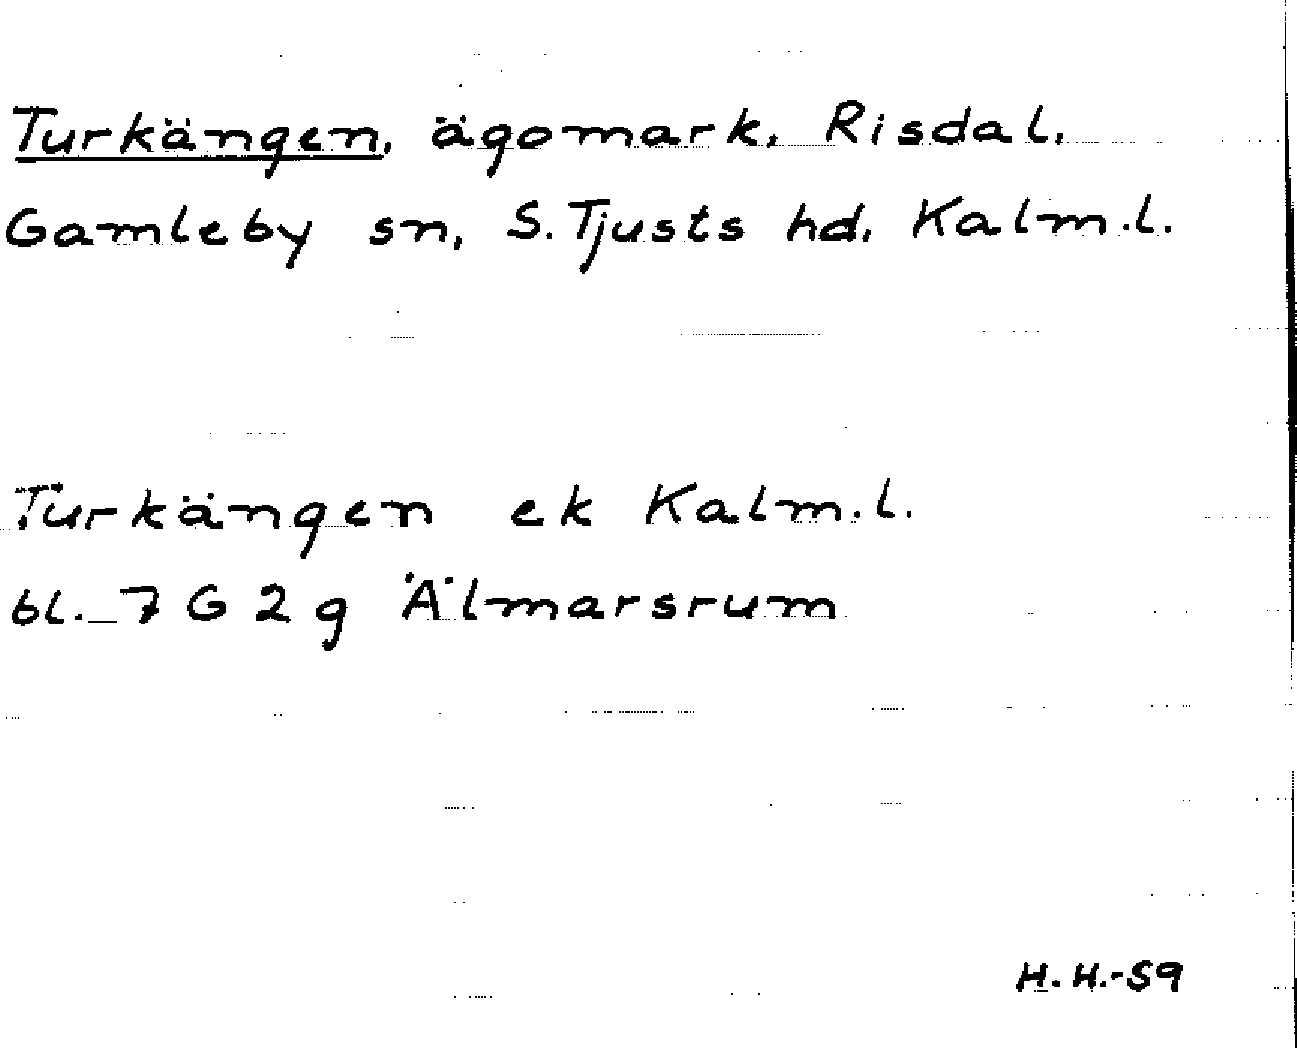 Turkängen, ägomark, Risdal,
Gamleby sn, S. Tjusts hd, Kalm.l.
Turkängen ek Kalm.l.
bl. 7 G 2 g Älmarsrum
H.H.-59